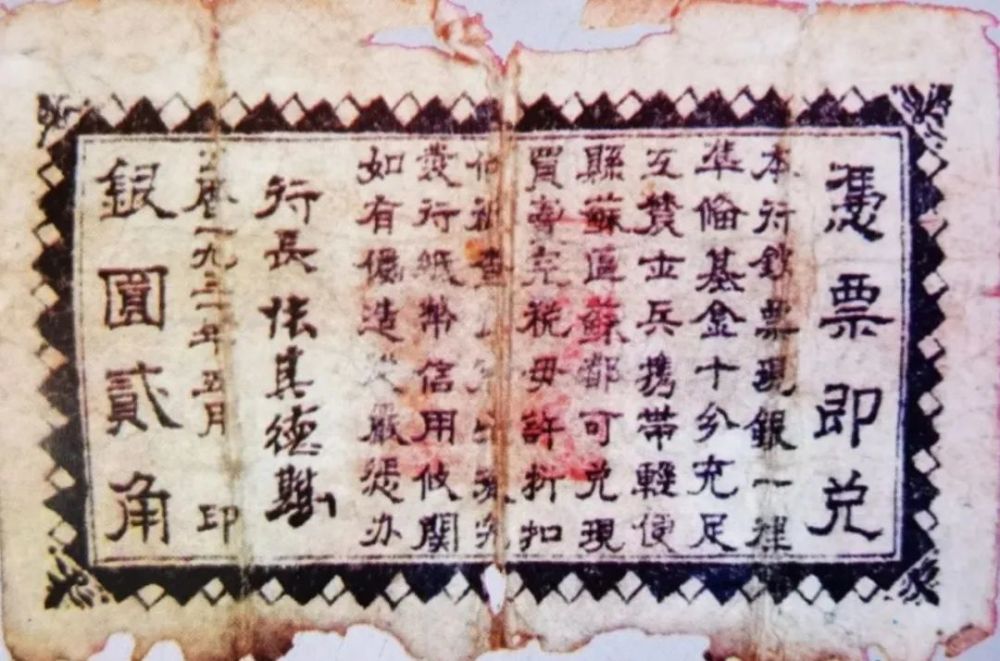 憑票即兑
本行鈔票現銀一理
準備基金十分充足
士兵携帶輕便
縣蘇區蘇都可兑現
買賣完税毋許折扣
查 究
發行紙幣信用攸關
如有僞造 嚴懲办
行長 張其德
曆一九三二年五月 印
銀圓貳角